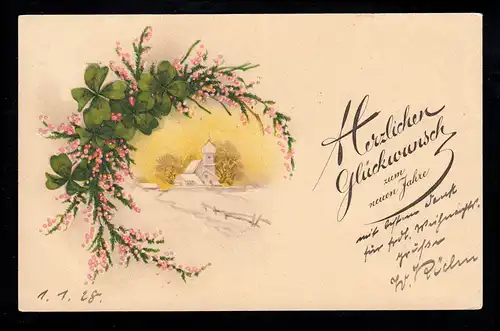 Herzlichen
Glückwunsch
zum
neuen Jahre
mit bestem Dank
für frdl. Weihnachts-
grüße
W.
1. 1. 28.